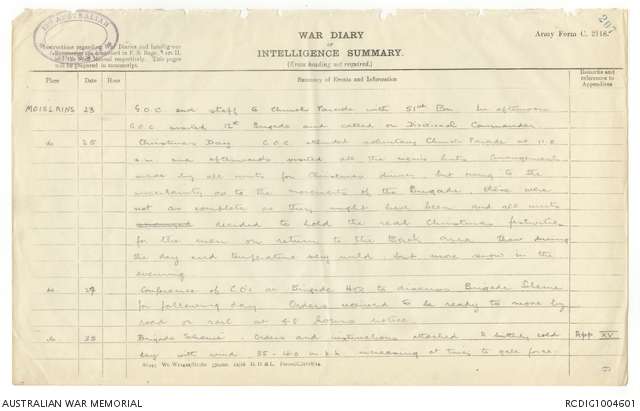 Army Form C. 2118.
WAR DIARY
or
INTELLIGENCE SUMMARY.
(Erase heading not required.)
Instructions regarding War Diaries and Intelligence
Summaries are contained in F. S. Regs., Part II.
and the Staff Manual respectively. Title pages
will be prepared in manuscript.
Place Date Hour Summary of Events and Information Remarks and references to Appendices
MOISLAINS 23 G.O.C. and staff to Church Parade with 51st Bn. In afternoon
G.O.C. visited 12th Brigade and called on Divisional Commander
do 25 Christmas Day G.O.C. attended voluntary Church Parade at
a.m. and afterwards visited all the mens huts. Arrangements
made by all units for Christmas dinner but owing to the
uncertainty as to the movements of the Brigade, these were
not as complete as they might have been and all units
decided to hold the real Christmas festivities
for the men on return to the area. Thaw during
the day and temperature very mild, but more snow in the
evening
do Conference of C.O's at Brigade HQ to discuss Brigade Scheme
for following day. Orders received to be ready to move by
road or rail at hours notice
Brigade Scheme. Orders and instructions attached. cold App XV
day with wind 35-40 m.p.h. increasing at times to gale force.
AUSTRALIAN WAR MEMORIAL
RCDIG1004601